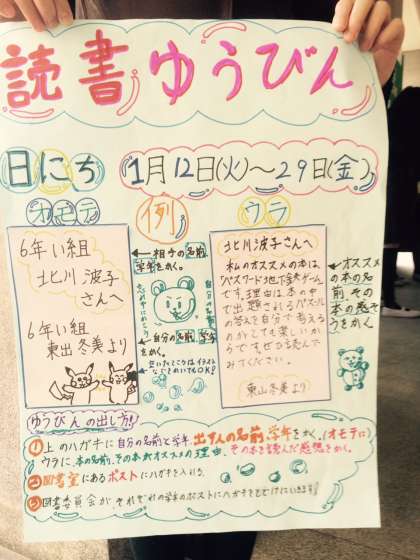 読書ゆうびん
日にち 1月12日(火)〜29日(金)
オモテ
例
ウラ
6年い組
北川 波子
さんへ
6年い組
東出 冬美より
←相手の名前、
学年をかく。
←自分の名前 学年
をかく。
←空いたところはイラスト
などをかいてもOK!
北川波子さんへ
私のオススメの本は、
「パスワード地下鉄ゲーム」
です。理由は、本の中
で出題されるパズル
の答えを自分で考える
のがとても楽しいか
らです。ぜひ読んで
みてください。
東山冬美より
←オススメ
の本の名
前、その
本の感そ
うをかく。
ゆうびんの出し方!
①上のハガキに自分の名前と学年、出す人の名前、学年をかく。(オモテに)
ウラに、本の名前、その本がオススメの理由、その本を読んだ感想をかく。
②図書室にあるポストにハガキを入れる。
③図書委員会が、それぞれの学年のポストにハガキをとどけにいきます!